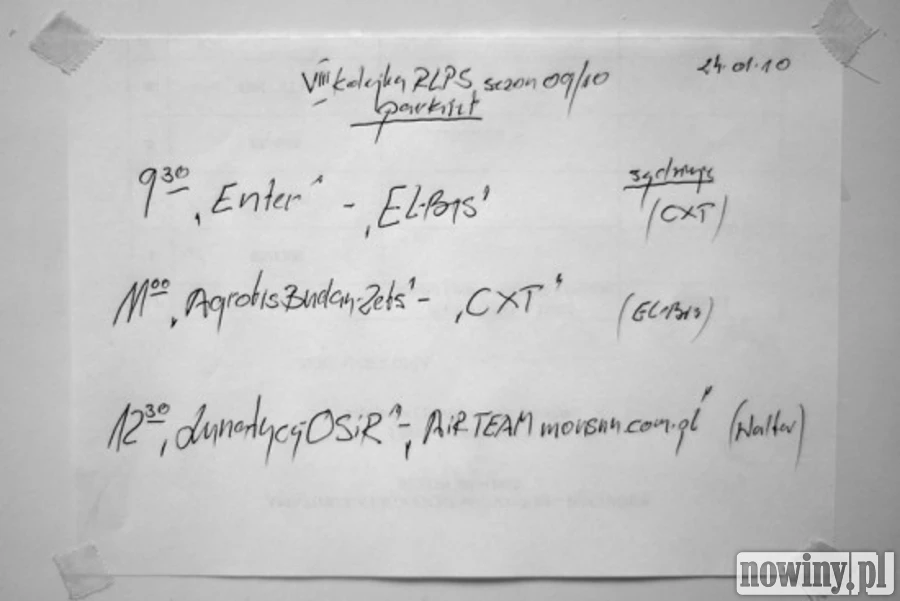 VIII kolejka RLPS sezon 09/10 24.01.10
parkiet
sędziują
9³⁰ „Enter” - „EL-Bis” (CXT)
11⁰⁰ „Agrotis Budan-Zets” - „CXT” (EL-Bis)
12³⁰ „Lunatycy OSiR” - „AiRTEAM morsun.com.pl” (Walter)
nowiny.pl